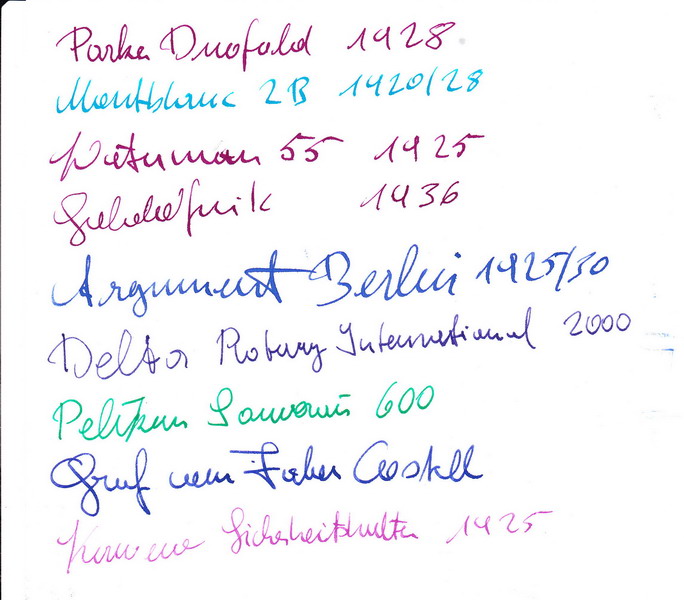 Parker Duofold 1928
Montblanc 2B 1920/28
Waterman 55 1925
1936
Argument Berlin 1925/30
Delta Rotary International 2000
Pelikan Souverän 600
Graf von Faber Castell
Sicherheitshalter 1925